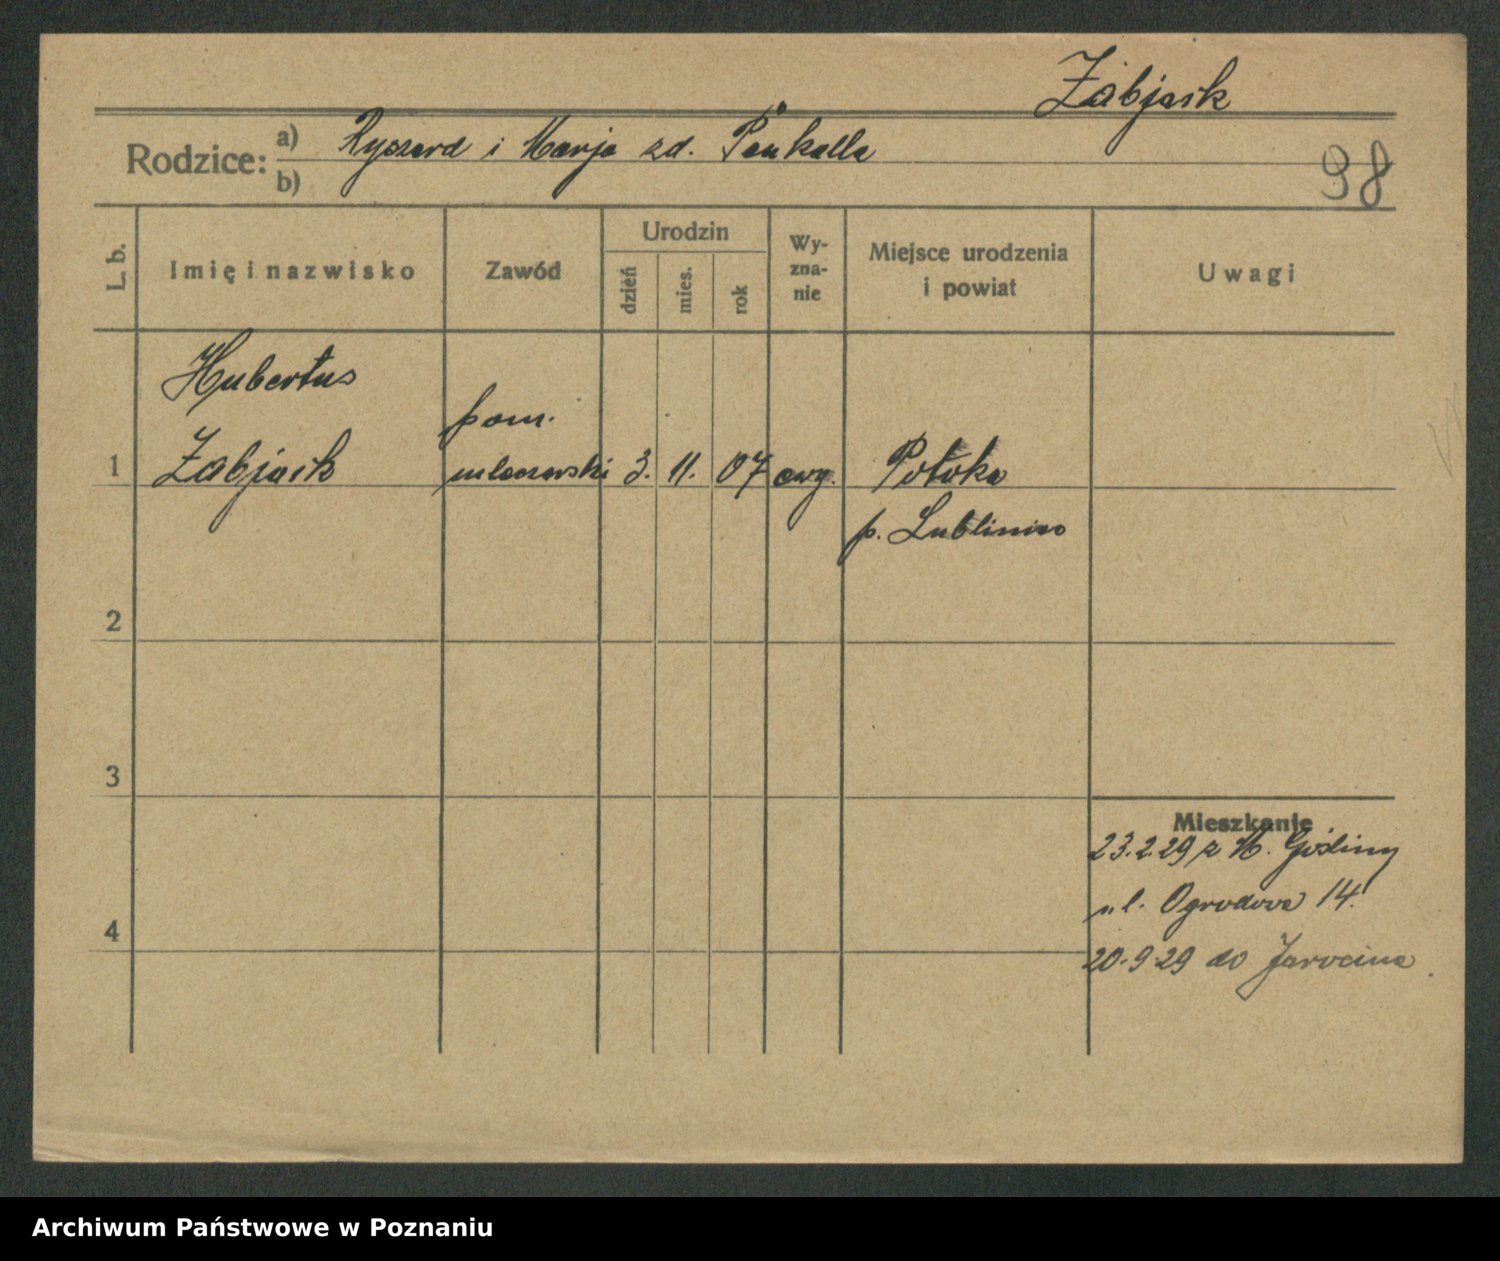 Żabjask
Rodzice:
a) Ryszard i Marja zd. Pankalla
b)
98
L. b.
Imię i nazwisko
Zawód
Urodzin
dzień
mies.
rok
Wy-
zna-
nie
Miejsce urodzenia
i powiat
Uwagi
Hubertus
pom.
1 Zabjask mleczarski 3. 11. 07 ewg. Potoka
p. Lubliniec
2
3
Mieszkanie
23.2.29 z H. Gośliny
ul. Ogrodova 14.
4
20.9.29 do Jarocina
Archiwum Państwowe w Poznaniu